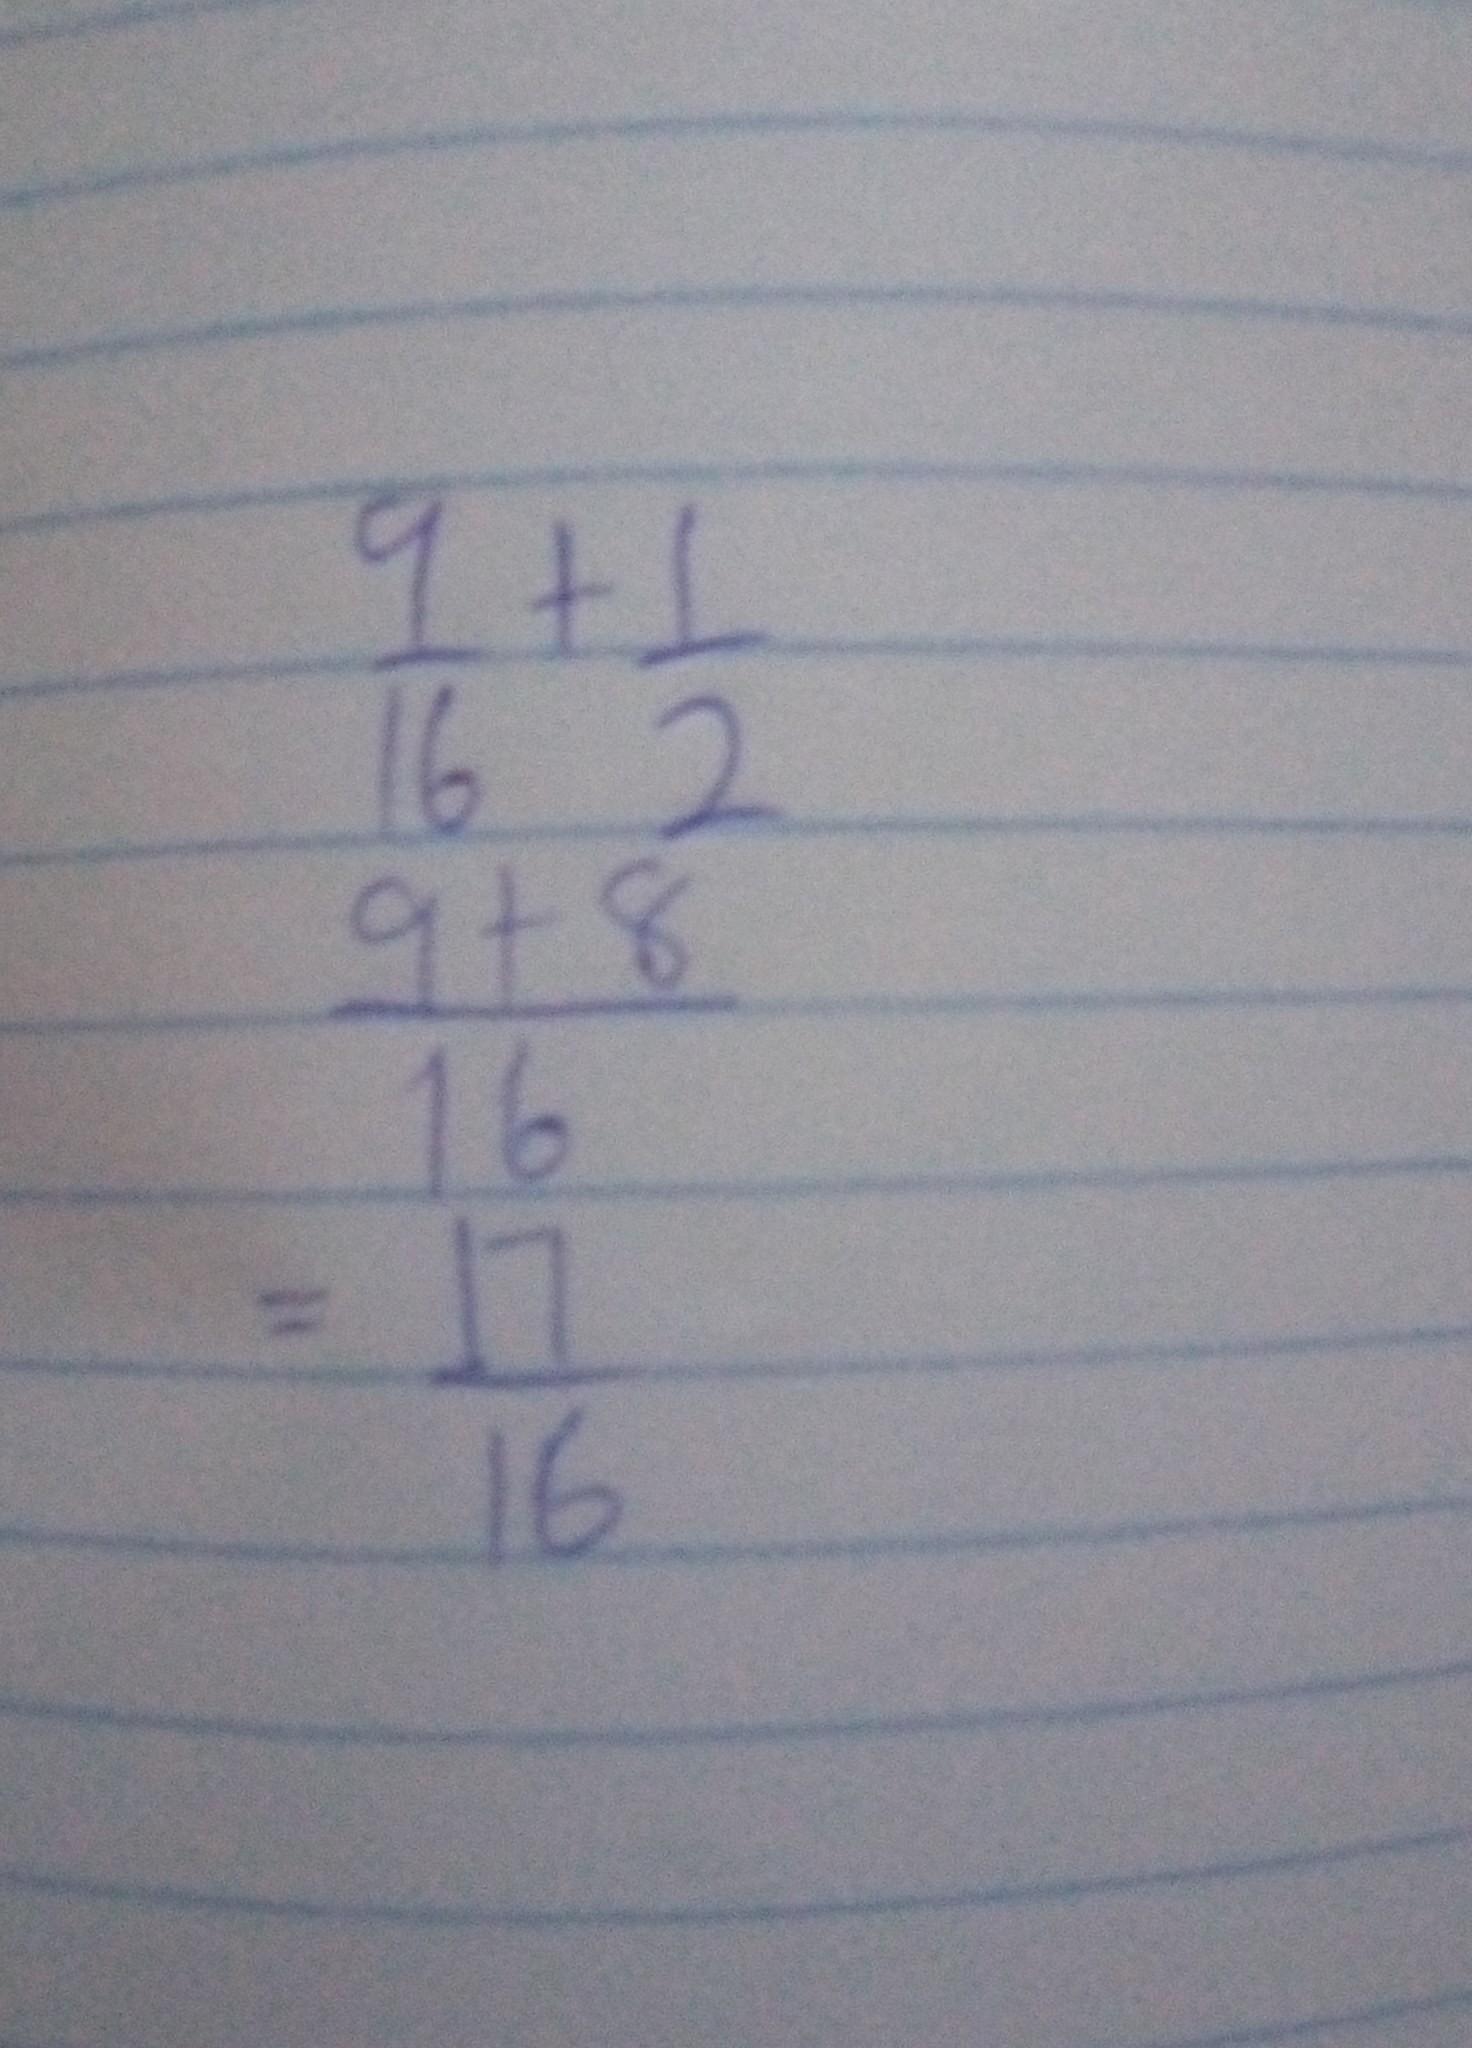 9/16 + 1/2
9 + 8/16
= 17/16